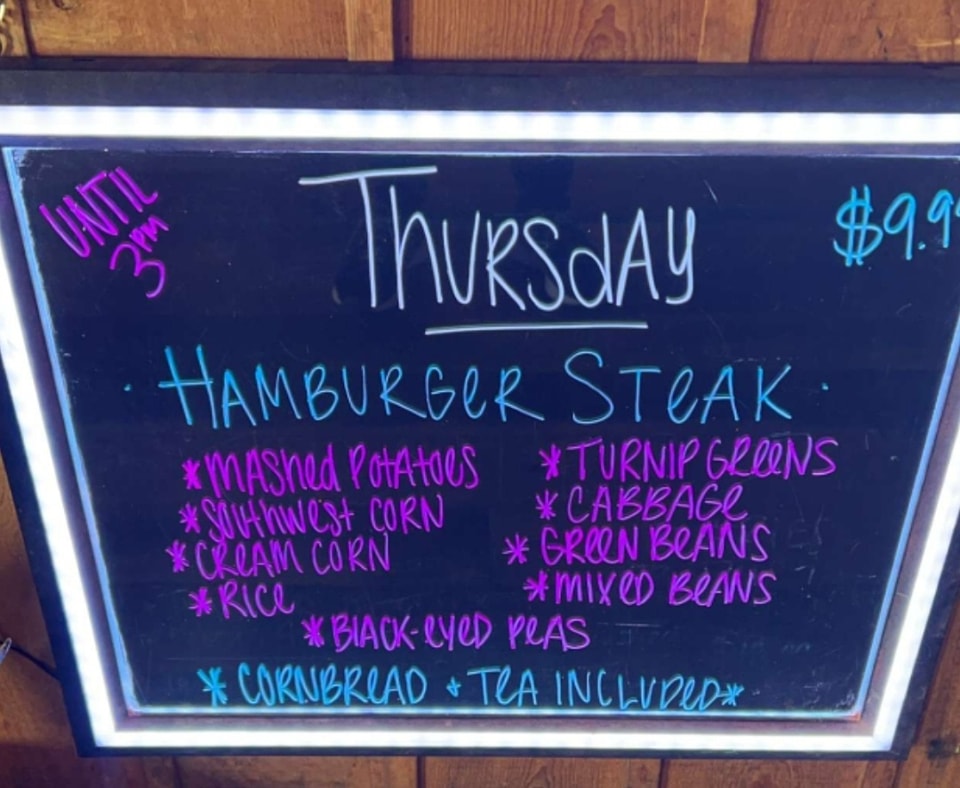 UNTIL
3PM
THURSdAY
$9.9
· HAMBURGER STEAK ·
*MASHED POTATOES
*SOUTHWEST CORN
*CREAM CORN
*RICE
*TURNIP GREENS
*CABBAGE
*GREEN BEANS
*MIXED BEANS
*BLACK-EYED PEAS
*CORNBREAD + TEA INCLUDED*